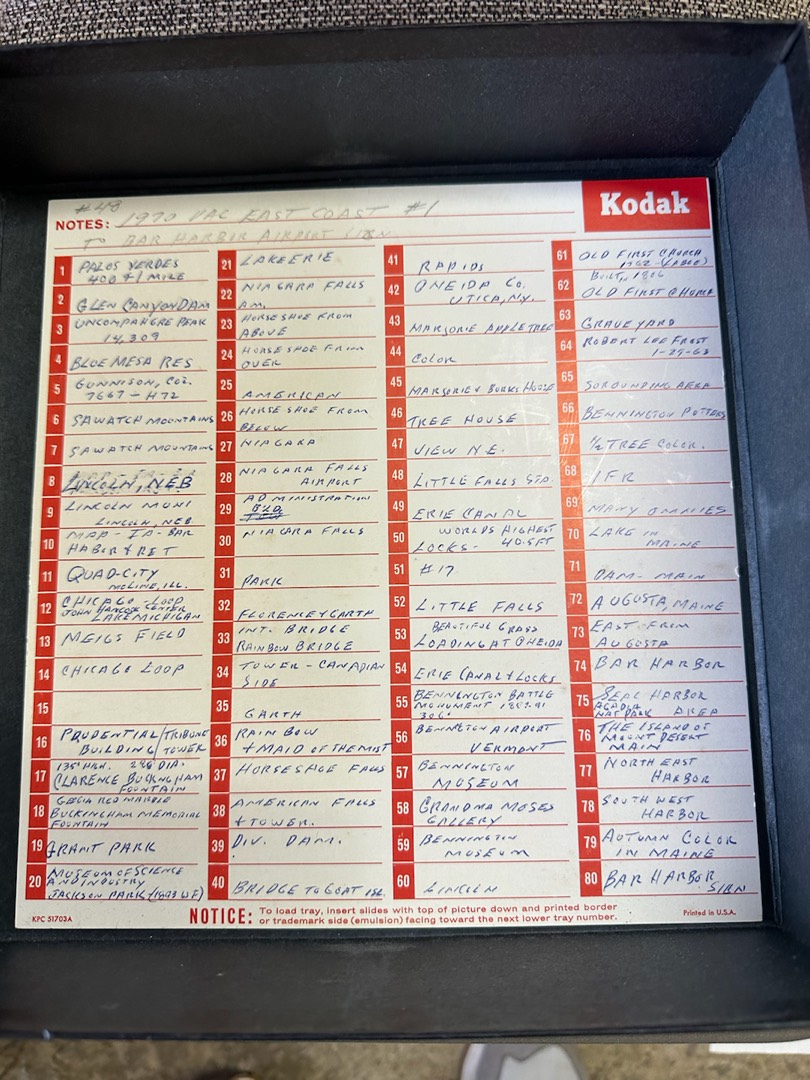 Kodak
#48
NOTES: 1970 VAC EAST COAST #1
TO BAR HARBOR AIRPORT SIGN
1 PALOS VERDES
400 FT / MILE
2 GLEN CANYON DAM
3 UNCOMPAHGRE PEAK
14,309
4 BLUE MESA RES
5 GUNNISON, COL.
7667 - H72
6 SAWATCH MOUNTAINS
7 SAWATCH MOUNTAINS
8 LINCOLN, NEB
9 LINCOLN MUNI
LINCOLN, NEB
10 MAP - IA - BAR
HABOR & RET
11 QUAD-CITY
MOLINE, ILL.
12 CHICAGO LOOP
JOHN HANCOCK CENTER
LAKE MICHIGAN
13 MEIGS FIELD
14 CHICAGO LOOP
15
16 PRUDENTIAL / TRIBUNE
BUILDING / TOWER
17 135' HIGH. DIA.
CLARENCE BUCKINGHAM
FOUNTAIN
18 GEOGIA RED MARBLE
BUCKINGHAM MEMORIAL
FOUNTAIN
19 GRANT PARK
20 MUSEUM OF SCIENCE
AND INDUSTRY
JACKSON PARK (1893 WF)
21 LAKE ERIE
22 NIAGARA FALLS
AM.
23 HORSESHOE FROM
ABOVE
24 HORSESHOE FROM
OVER
25 AMERICAN
26 HORSESHOE FROM
BELOW
27 NIAGARA
28 NIAGARA FALLS
AIRPORT
29 ADMINISTRATION
BLD.
30 NIAGARA FALLS
31 PARK
32 FLORENCE & GARTH
33 INT. BRIDGE
RAINBOW BRIDGE
34 TOWER - CANADIAN
SIDE
35 GARTH
36 RAINBOW
+ MAID OF THE MIST
37 HORSESHOE FALLS
38 AMERICAN FALLS
+ TOWER.
39 DIV. DAM.
40 BRIDGE TO GOAT ISL.
41 RAPIDS
42 ONEIDA CO.
UTICA, NY.
43 MARJORIE APPLE TREE
44 COLOR
45 MARJORIE & BURKS HOUSE
46 TREE HOUSE
47 VIEW N.E.
48 LITTLE FALLS STA.
49 ERIE CANAL
50 WORLDS HIGHEST
LOCKS - 40.5FT
51 #17
52 LITTLE FALLS
53 BEAUTIFUL GRASS
LOADING AT ONEIDA
54 ERIE CANAL & LOCKS
55 BENNINGTON BATTLE
MONUMENT 1889.91
306'
56 BENNINGTON AIRPORT
VERMONT
57 BENNINGTON
MUSEUM
58 GRANDMA MOSES
GALLERY
59 BENNINGTON
MUSEUM
60 LINCOLN
61 OLD FIRST CHURCH
1762
BUILT, 1806
62 OLD FIRST CHURCH
63 GRAVEYARD
64 ROBERT LEE FROST
1-29-63
65 SOROUNDING AREA
66 BENNINGTON POTTERS
67 1/2 TREE COLOR.
68 IFR
69 MANY
70 LAKE IN
MAINE
71 DAM - MAIN
72 AUGUSTA, MAINE
73 EAST FROM
AUGUSTA
74 BAR HARBOR
75 SEAL HARBOR
AGADIA
NAT PARK AREA
76 THE ISLAND OF
MOUNT DESERT
MAIN
77 NORTH EAST
HARBOR
78 SOUTH WEST
HARBOR
79 AUTUMN COLOR
IN MAINE
80 BAR HARBOR
SIGN
KPC 51703A
NOTICE: To load tray, insert slides with top of picture down and printed border
or trademark side (emulsion) facing toward the next lower tray number.
Printed in U.S.A.